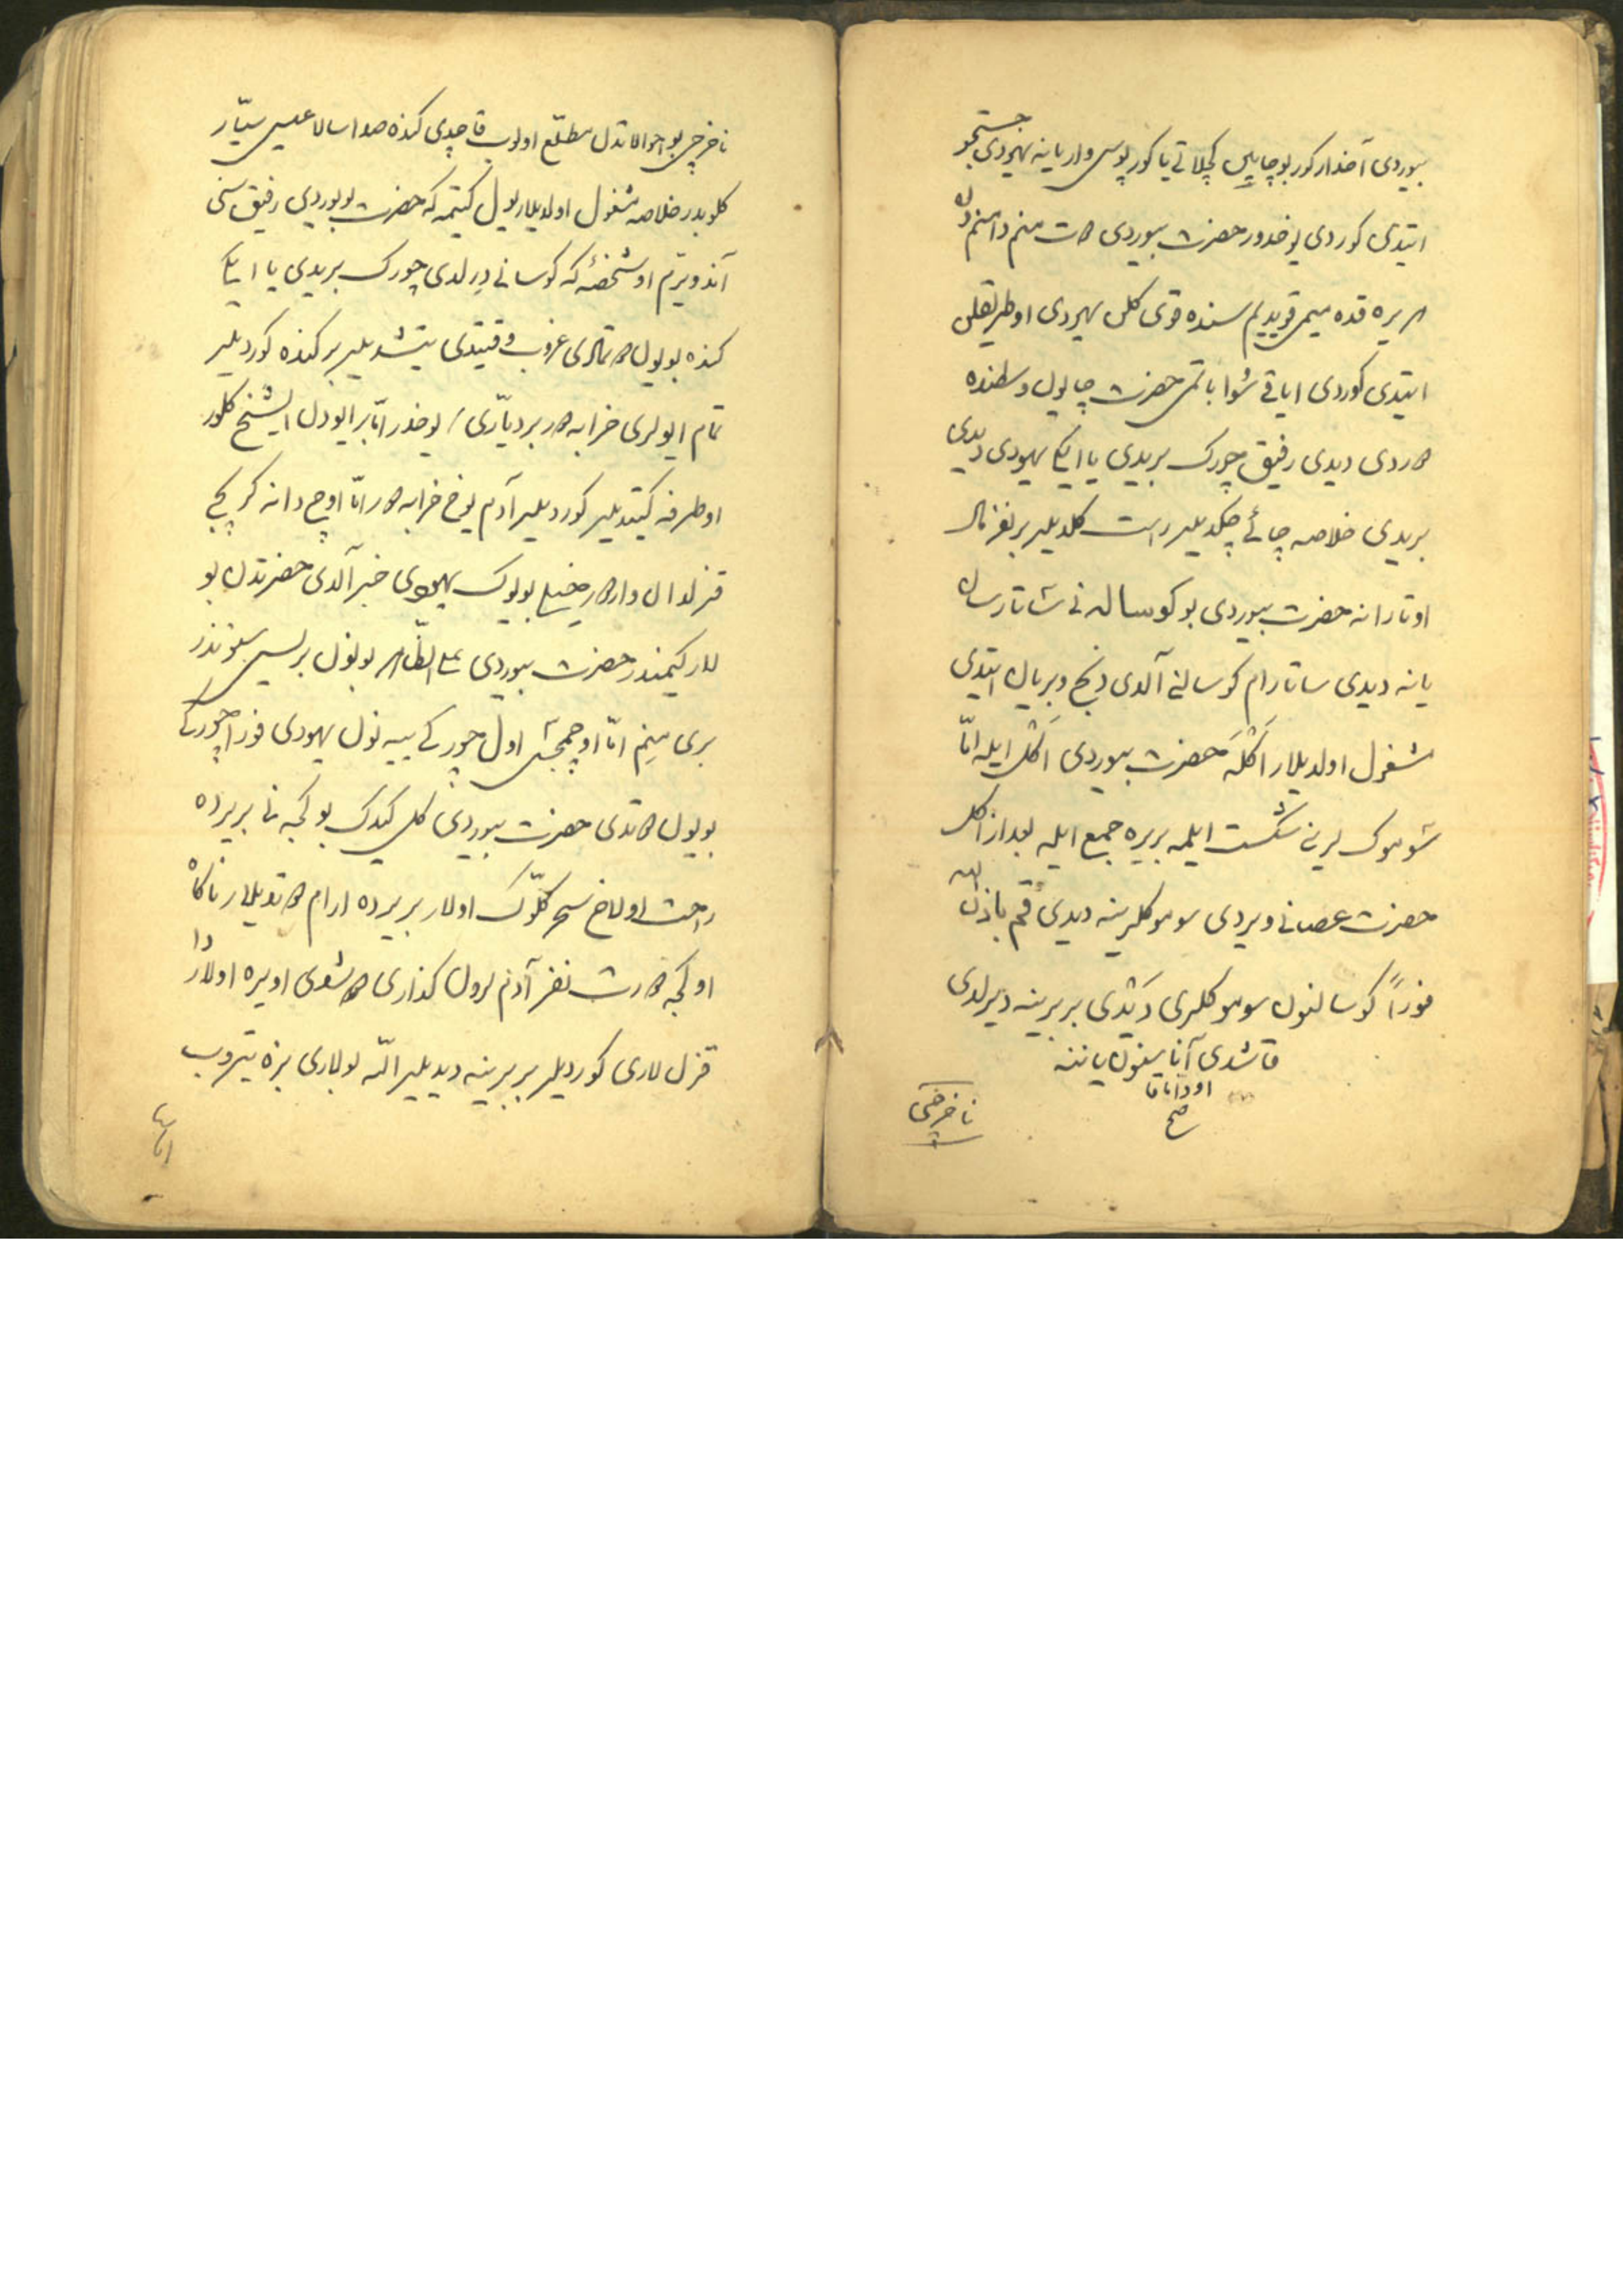 بیوردی آختار کور بو چایین کچلاتی یا کورپوسی وار یا نه یهودی جستجو
ایتدی کوردی یوخدور حضرت بیوردی دوت منم دامنم دن
هر یره قدم میمی قویدیم سنده قوی کلن یهودی او طریقلن
ایتدی کوردی ایاقی سوا باتمی حضرت چایون وسطنده
دوردی دیدی رفیق چورک بریدی یا ایکی یهودی دیدی
بریدی خلاصه چائی چکدیلر راست کلدیلر بر نفر مال
اوتارانه حضرت بیوردی بو کوساله نی ساتارسان
یا نه دیدی ساتارام کوسالنی آلدی ذبح و بریان ایتدی
مشغول اولدیلار اکله حضرت بیوردی اکل ایله امّا
سوموک لرینی شکست ایلمه بریره جمع ایله بعد از اکل
حضرت عصانی ویردی سوموکلرینه دیدی قم باذن الله
فوراً کوسالنون سوموکلری دَیدی بر برینه دیرلدی
قاشدی آناسینون یاننه
اودا باقا
صح
ناخرچی
ناخرچی بو احوالاتدن مطلع اولوب قاچدی کنده صدا سالا عیسی سیّار
کلوبدر خلاصه مشغول اولدیلار یول کیتمه که حضرت بویوردی رفیق سنی
آند ویررم او شخصه که کوسانی دیرلدی چورک بریدی یا ایکی
کنده بو یول قوتالدی غروب وقتیدی یتشدیلر بر کنده کوردیلر
تمام ایولری خرابه دور بر دیّاری یوخدر امّا بر ایودن ایشیخ کلور
او طرفه کیتدیلر کوردیلر آدم یوخ خرابه دور امّا اوچ دانه کرپچ
قزلدان وار دور خیلی بویوک یهودی خبر آلدی حضرتدن بو
لار کیمندر حضرت بیوردی علی الظاهر بونون بریسی سنوندر
بری منم امّا اوچمجی اول چورکی ییه نون یهودی فوراً چورکی
بویون دوتدی حضرت بیوردی کل کیدک بو کجه نی بریرده
راحت اولاخ سحر کلّوک اولار بریرده ارام دوتدیلار ناکاه
او کجه دورت نفر آدم لرون کذاری دوشدی او یره اولار دا
قزل لاری کوردیلر بر برینه دیدیلر الله بولاری بزه یتیروب